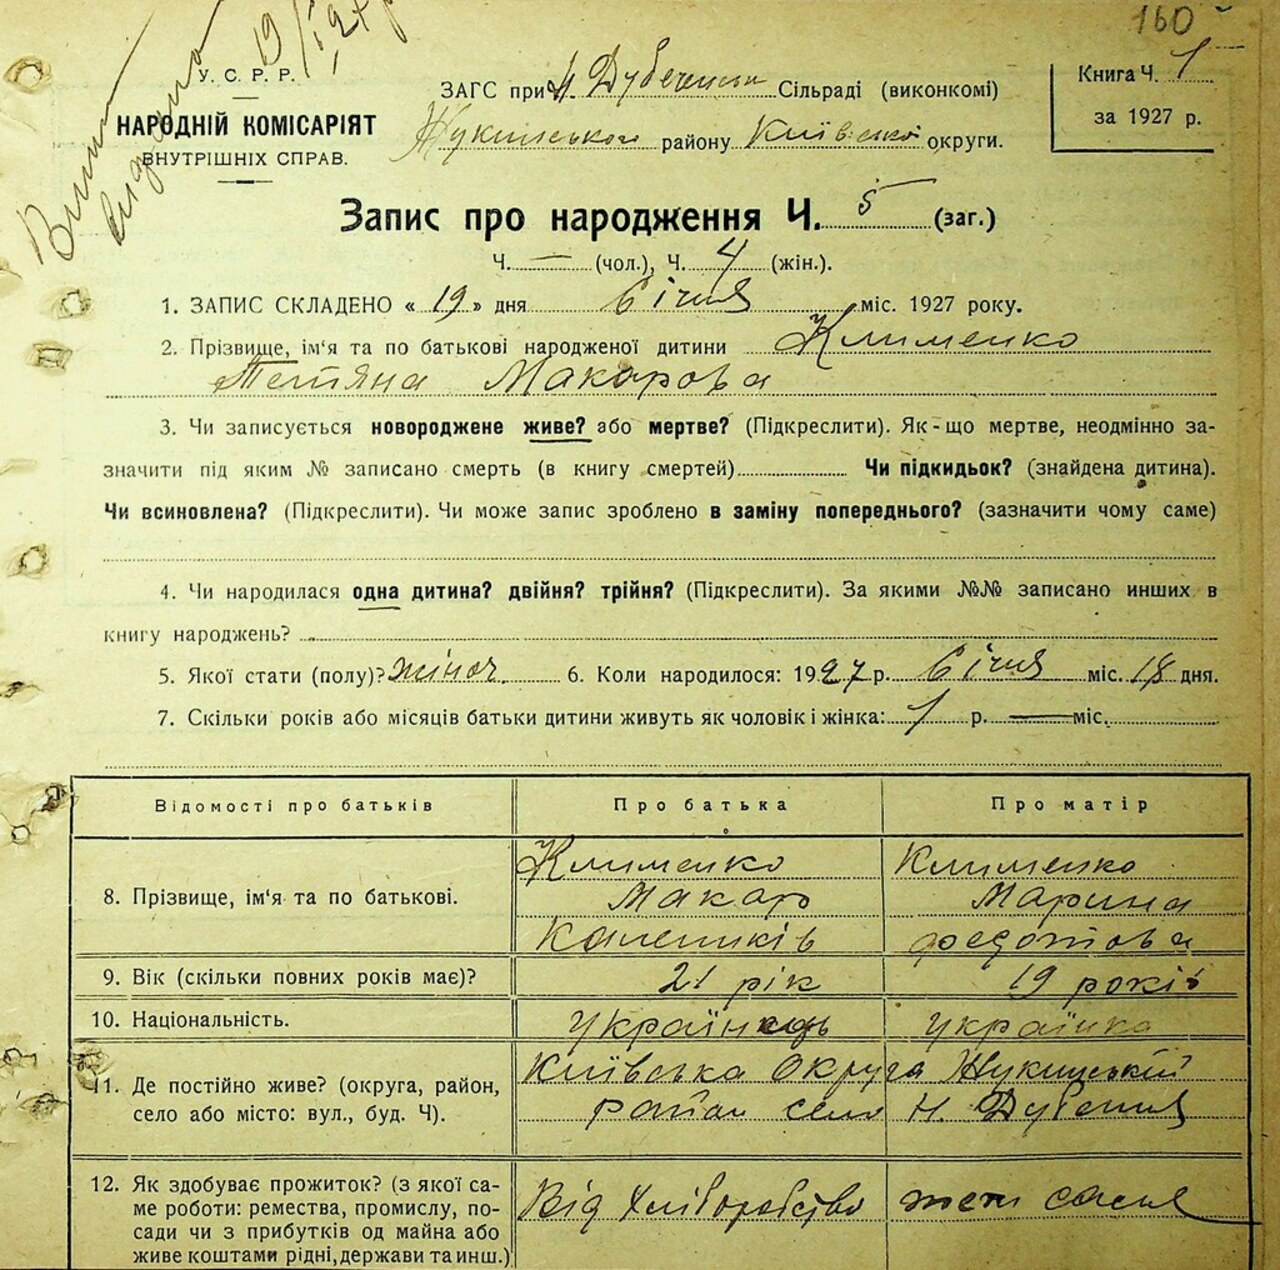 160
19/I 27 р
У. С. Р. Р.
НАРОДНІЙ КОМІСАРІЯТ
ВНУТРІШНІХ СПРАВ.
ЗАГС при Н. Дубечнян Сільраді (виконкомі)
Жукинського району Київської округи.
Книга Ч. 1
за 1927 р.
Запис про народження Ч. 5 (заг.)
Ч. — (чол.), Ч. 4 (жін.).
1. ЗАПИС СКЛАДЕНО « 19 » дня Січня міс. 1927 року.
2. Прізвище, ім'я та по батькові народженої дитини Клименко
Тетяна Макарова
3. Чи записується новороджене живе? або мертве? (Підкреслити). Як-що мертве, неодмінно за-
значити під яким № записано смерть (в книгу смертей) Чи підкидьок? (знайдена дитина).
Чи всиновлена? (Підкреслити). Чи може запис зроблено в заміну попереднього? (зазначити чому саме)
4. Чи народилася одна дитина? двійня? трійня? (Підкреслити). За якими №№ записано инших в
книгу народжень?
5. Якої стати (полу)? жіноч. 6. Коли народилося: 1927 р. Січня міс. 18 дня.
7. Скільки років або місяців батьки дитини живуть як чоловік і жінка: 1 р. — міс.
Відомості про батьків Про батька Про матір
8. Прізвище, ім'я та по батькові. Клименко Макар Калеників Клименко Марина Федотова
9. Вік (скільки повних років має)? 21 рік 19 років
10. Національність. українець українка
11. Де постійно живе? (округа, район, Київська Округа Жукинський
село або місто: вул., буд. Ч). район село Н. Дубечня
12. Як здобуває прожиток? (з якої са- Від Хліборобство теж саме
ме роботи: ремества, промислу, по-
сади чи з прибутків од майна або
живе коштами рідні, держави та инш.)